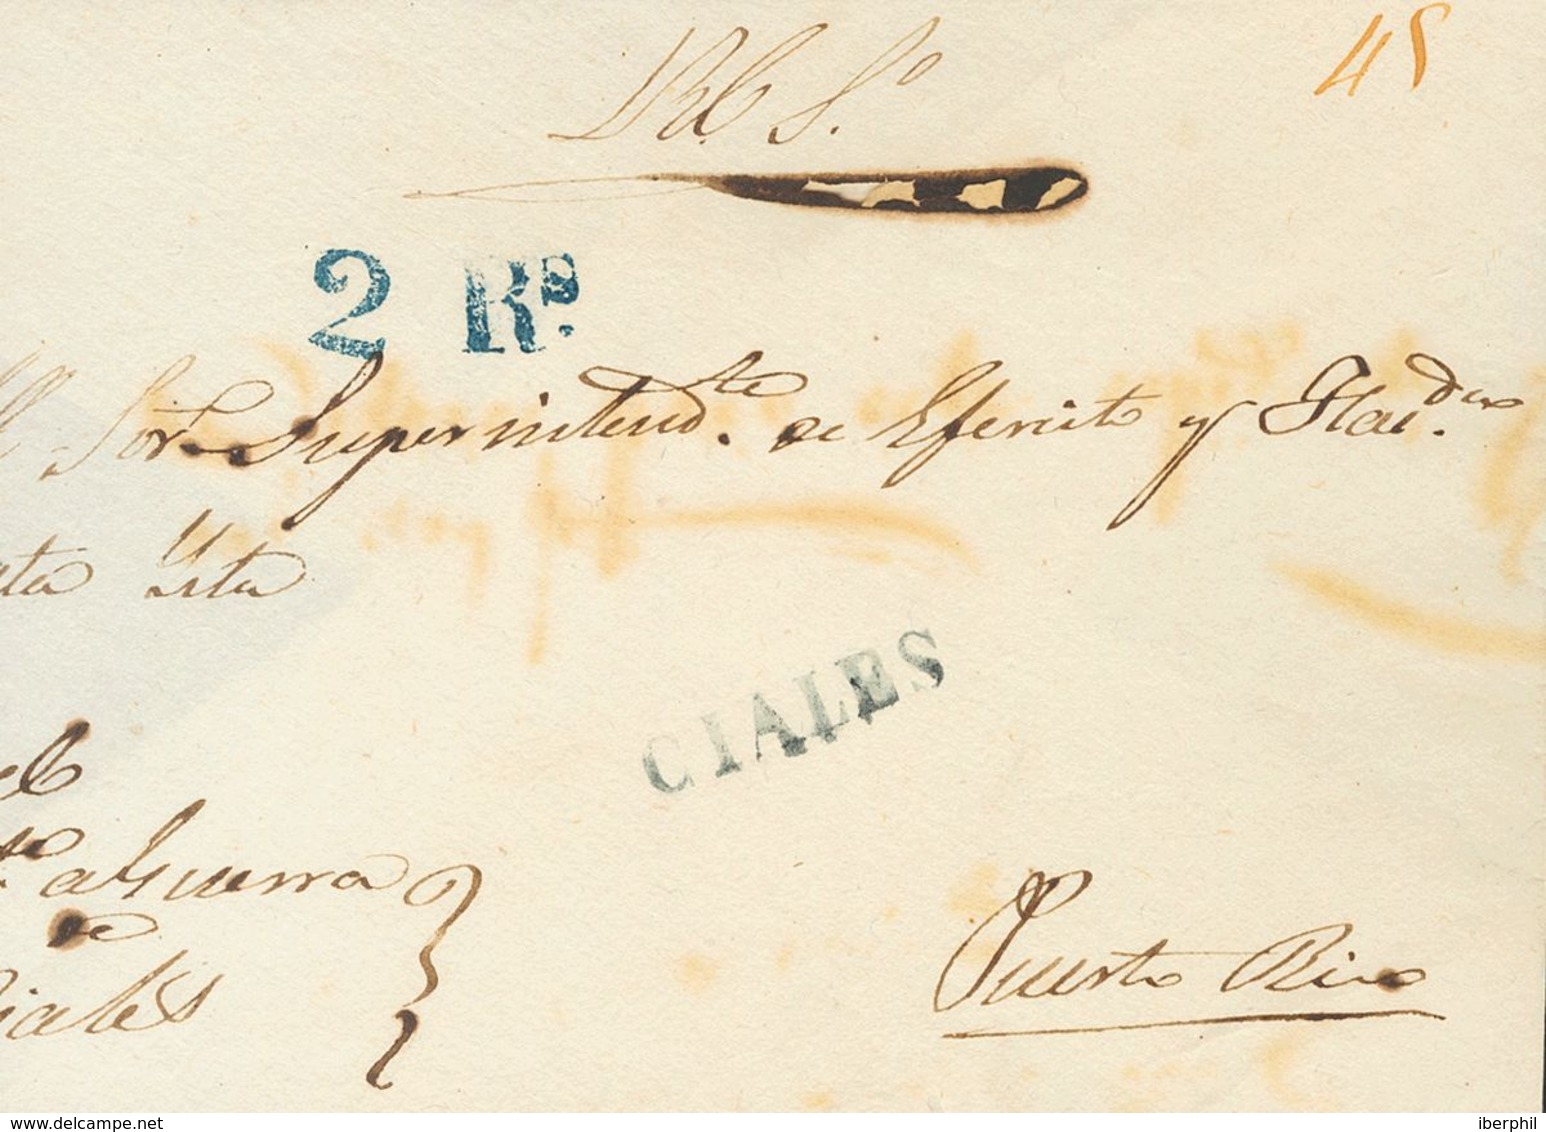 Rl. So.
45
2 Rs.
Sor. Superintendte. de Egercito y Hacda.
Ysta
CIALES
el
a Guerra
de
Ciales
Puerto Rico
delcampe.net
iberphil